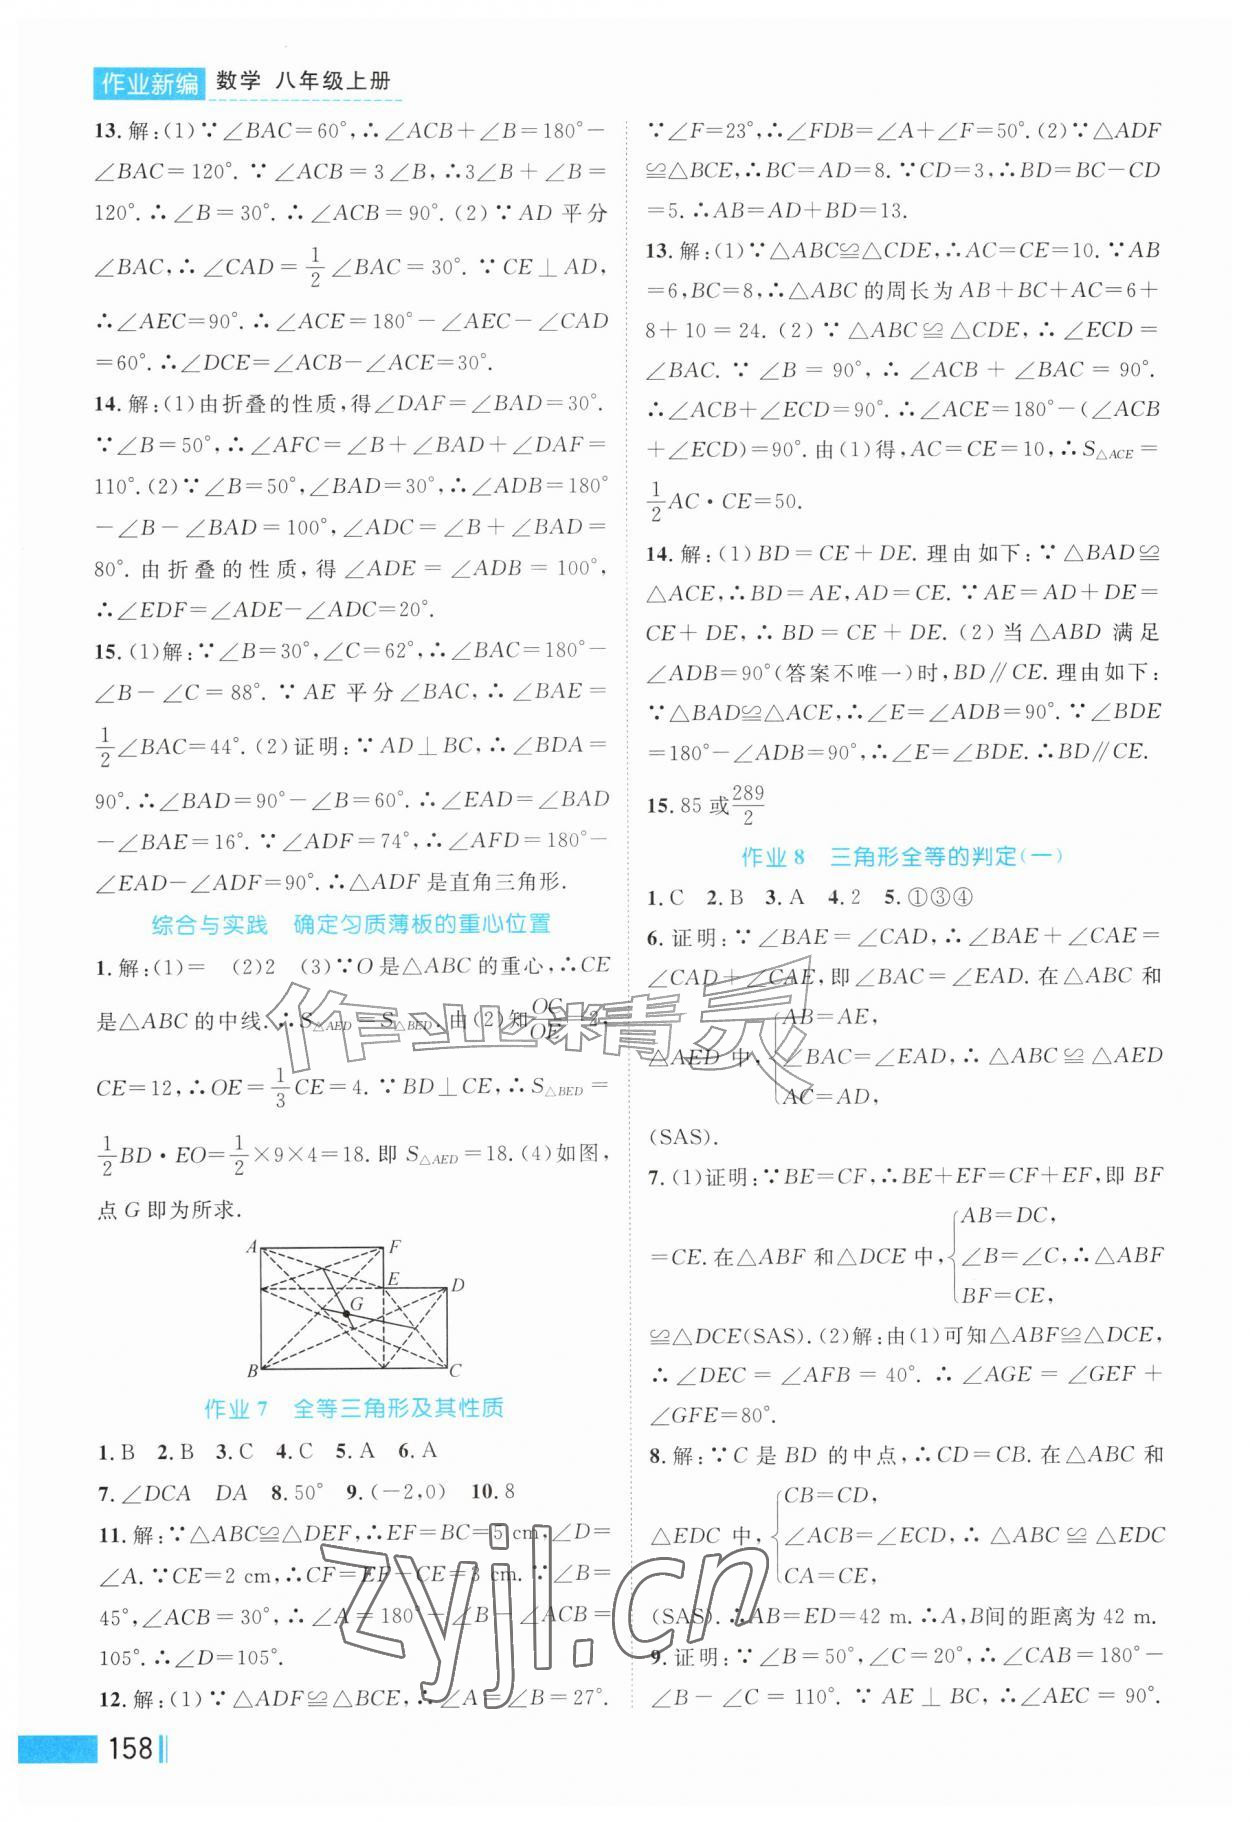 作业新编 数学 八年级上册
13.解:(1)∵∠BAC=60°,∴∠ACB+∠B=180°−
∠BAC=120°.∵∠ACB=3∠B,∴3∠B+∠B=
120°.∴∠B=30°.∴∠ACB=90°.(2)∵AD平分
∠BAC,∴∠CAD=1/2∠BAC=30°.∵CE⊥AD,
∴∠AEC=90°.∴∠ACE=180°−∠AEC−∠CAD
=60°.∴∠DCE=∠ACB−∠ACE=30°.
14.解:(1)由折叠的性质,得∠DAF=∠BAD=30°.
∵∠B=50°,∴∠AFC=∠B+∠BAD+∠DAF=
110°.(2)∵∠B=50°,∠BAD=30°,∴∠ADB=180°
−∠B−∠BAD=100°,∠ADC=∠B+∠BAD=
80°.由折叠的性质,得∠ADE=∠ADB=100°,
∴∠EDF=∠ADE−∠ADC=20°.
15.(1)解:∵∠B=30°,∠C=62°,∴∠BAC=180°−
∠B−∠C=88°.∵AE平分∠BAC,∴∠BAE=
1/2∠BAC=44°.(2)证明:∵AD⊥BC,∴∠BDA=
90°.∴∠BAD=90°−∠B=60°.∴∠EAD=∠BAD
−∠BAE=16°.∵∠ADF=74°,∴∠AFD=180°−
∠EAD−∠ADF=90°.∴△ADF是直角三角形.
综合与实践 确定匀质薄板的重心位置
1.解:(1)= (2)2 (3)∵O是△ABC的重心,∴CE
是△ABC的中线.∴S△AED=S△BED.由(2)知OC/OE=2,
CE=12,∴OE=1/3CE=4.∵BD⊥CE,∴S△BED=
1/2BD·EO=1/2×9×4=18.即S△AED=18.(4)如图,
点G即为所求.
A F
E D
G
B C
作业7 全等三角形及其性质
1.B 2.B 3.C 4.C 5.A 6.A
7.∠DCA DA 8.50° 9.(−2,0) 10.8
11.解:∵△ABC≌△DEF,∴EF=BC=5 cm,∠D=
∠A.∵CE=2 cm,∴CF=EF−CE=3 cm.∵∠B=
45°,∠ACB=30°,∴∠A=180°−∠B−∠ACB=
105°.∴∠D=105°.
12.解:(1)∵△ADF≌△BCE,∴∠A=∠B=27°.
∵∠F=23°,∴∠FDB=∠A+∠F=50°.(2)∵△ADF
≌△BCE,∴BC=AD=8.∵CD=3,∴BD=BC−CD
=5.∴AB=AD+BD=13.
13.解:(1)∵△ABC≌△CDE,∴AC=CE=10.∵AB
=6,BC=8,∴△ABC的周长为AB+BC+AC=6+
8+10=24.(2)∵△ABC≌△CDE,∴∠ECD=
∠BAC.∵∠B=90°,∴∠ACB+∠BAC=90°.
∴∠ACB+∠ECD=90°.∴∠ACE=180°−(∠ACB
+∠ECD)=90°.由(1)得,AC=CE=10,∴S△ACE=
1/2AC·CE=50.
14.解:(1)BD=CE+DE.理由如下:∵△BAD≌
△ACE,∴BD=AE,AD=CE.∵AE=AD+DE=
CE+DE,∴BD=CE+DE.(2)当△ABD满足
∠ADB=90°(答案不唯一)时,BD∥CE.理由如下:
∵△BAD≌△ACE,∴∠E=∠ADB=90°.∵∠BDE
=180°−∠ADB=90°,∴∠E=∠BDE.∴BD∥CE.
15.85或289/2
作业8 三角形全等的判定(一)
1.C 2.B 3.A 4.2 5.①③④
6.证明:∵∠BAE=∠CAD,∴∠BAE+∠CAE=
∠CAD+∠CAE,即∠BAC=∠EAD.在△ABC和
AB=AE,
△AED中,{∠BAC=∠EAD,∴△ABC≌△AED
AC=AD,
(SAS).
7.(1)证明:∵BE=CF,∴BE+EF=CF+EF,即BF
AB=DC,
=CE.在△ABF和△DCE中,{∠B=∠C,∴△ABF
BF=CE,
≌△DCE(SAS).(2)解:由(1)可知△ABF≌△DCE,
∴∠DEC=∠AFB=40°.∴∠AGE=∠GEF+
∠GFE=80°.
8.解:∵C是BD的中点,∴CD=CB.在△ABC和
CB=CD,
△EDC中,{∠ACB=∠ECD,∴△ABC≌△EDC
CA=CE,
(SAS).∴AB=ED=42 m.∴A,B间的距离为42 m.
9.证明:∵∠B=50°,∠C=20°,∴∠CAB=180°−
∠B−∠C=110°.∵AE⊥BC,∴∠AEC=90°.
作业精灵
zyjl.cn
158